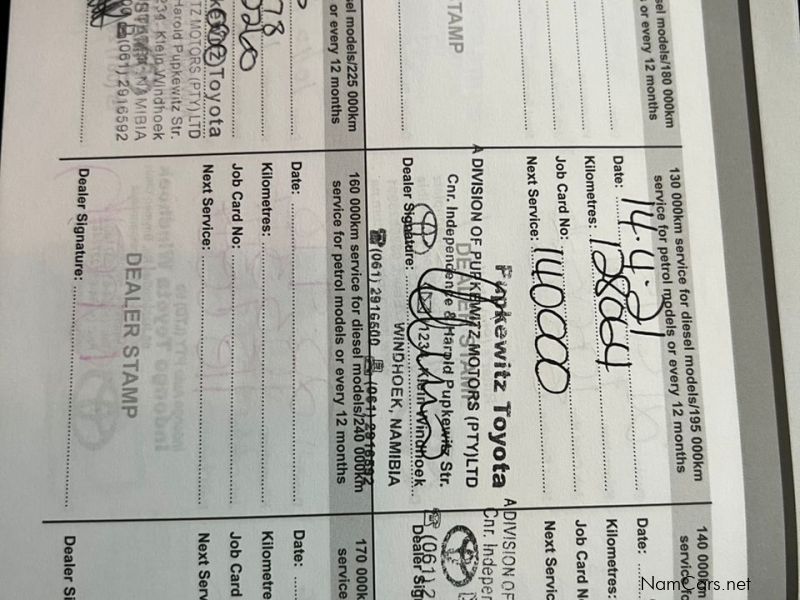 sel models/180 000km
or every 12 months
STAMP
130 000km service for diesel models/195 000km
service for petrol models or every 12 months
Date: 14.4.21
Kilometres:
Job Card No:
Next Service: 140000
Pupkewitz Toyota
DEALER STAMP
A DIVISION OF PUPKEWITZ MOTORS (PTY)LTD
Cnr. Independence & Harold Pupkewitz Str.
Dealer Signature:
Klein Windhoek
WINDHOEK, NAMIBIA
(061) 2916500 (061) 2916592
140 000km
Date:
Kilometres:
Job Card N
Next Service:
A DIVISION OF
Cnr. Indepen
(061) 2
Dealer Sig
sel models/225 000km
or every 12 months
78
Toyota
TZ MOTORS (PTY) LTD
Harold Pupkewitz Str.
Klein Windhoek
NAMIBIA
(061) 2916592
160 000km service for diesel models/240 000km
service for petrol models or every 12 months
Date:
Kilometres:
Job Card No:
Next Service:
DEALER STAMP
Dealer Signature:
170 000k
service
Date:
Kilometre
Job Card
Next Serv
Dealer Si
NamCars.net